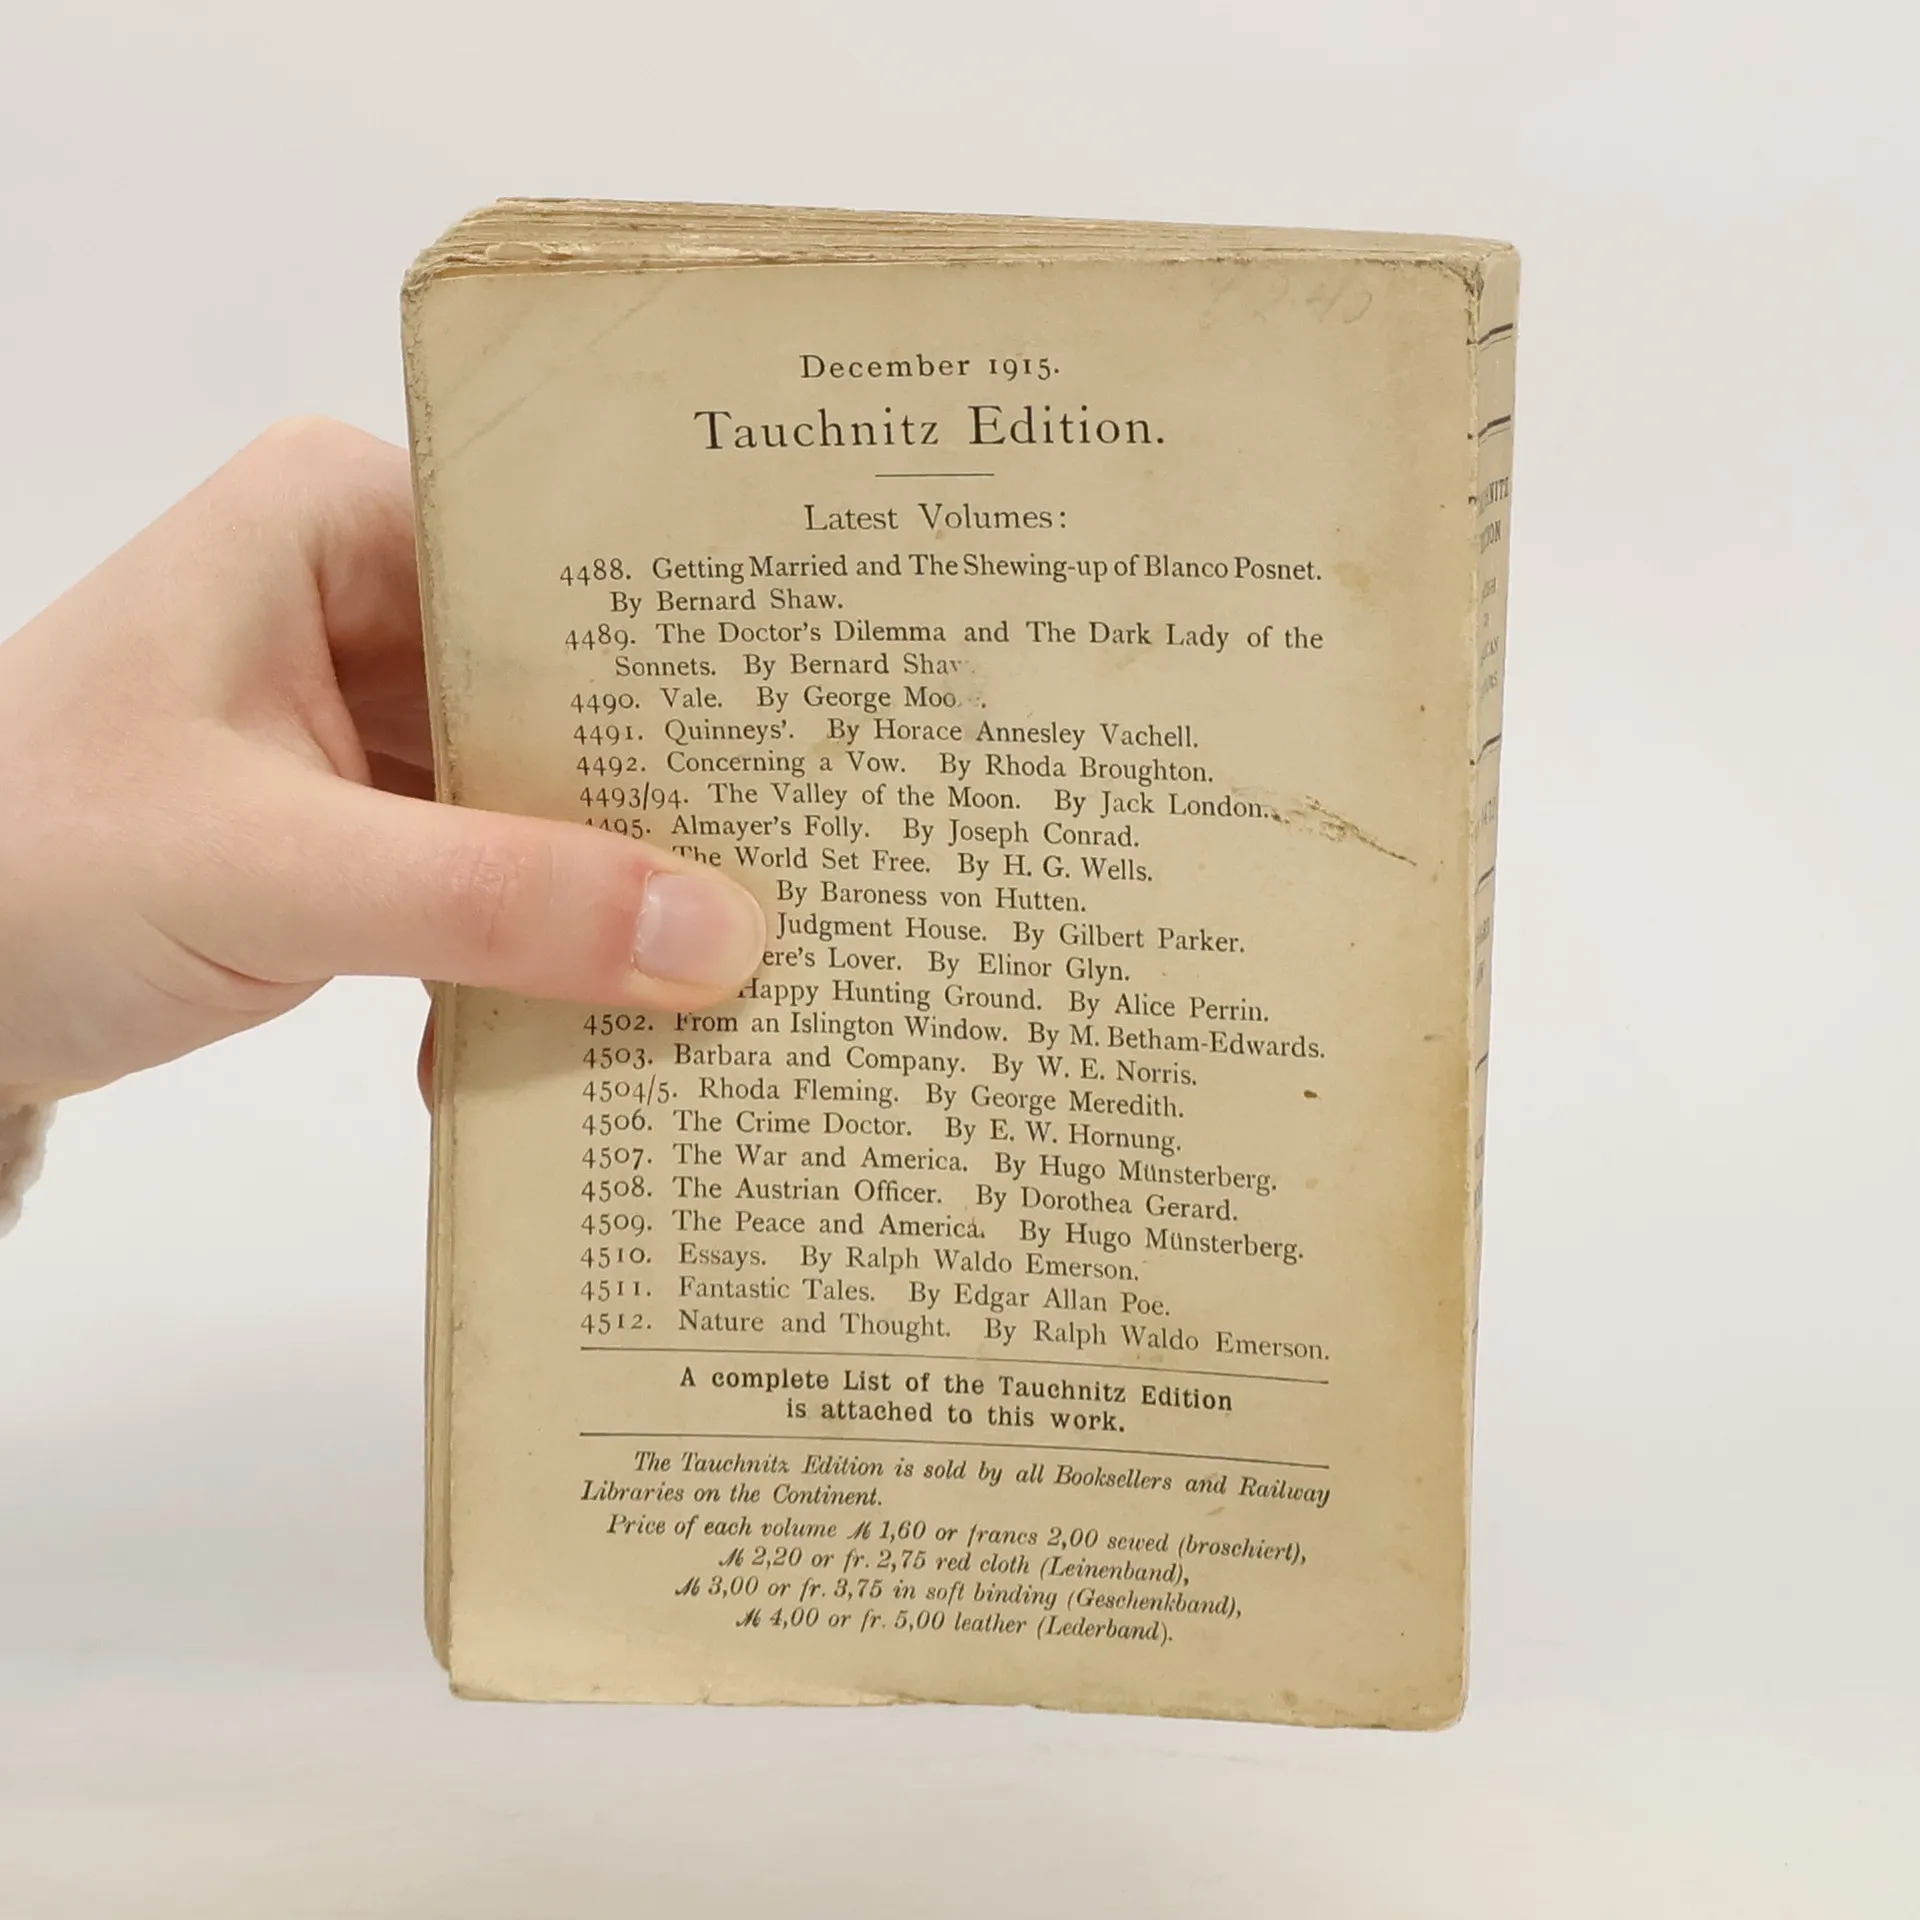 December 1915.
Tauchnitz Edition.
Latest Volumes:
4488. Getting Married and The Shewing-up of Blanco Posnet.
By Bernard Shaw.
4489. The Doctor's Dilemma and The Dark Lady of the
Sonnets. By Bernard Shaw.
4490. Vale. By George Moo
4491. Quinneys'. By Horace Annesley Vachell.
4492. Concerning a Vow. By Rhoda Broughton.
4493/94. The Valley of the Moon. By Jack London.
4495. Almayer's Folly. By Joseph Conrad.
The World Set Free. By H. G. Wells.
By Baroness von Hutten.
Judgment House. By Gilbert Parker.
ere's Lover. By Elinor Glyn.
Happy Hunting Ground. By Alice Perrin.
4502. From an Islington Window. By M. Betham-Edwards.
4503. Barbara and Company. By W. E. Norris.
4504/5. Rhoda Fleming. By George Meredith.
4506. The Crime Doctor. By E. W. Hornung.
4507. The War and America. By Hugo Münsterberg.
4508. The Austrian Officer. By Dorothea Gerard.
4509. The Peace and America. By Hugo Münsterberg.
4510. Essays. By Ralph Waldo Emerson.
4511. Fantastic Tales. By Edgar Allan Poe.
4512. Nature and Thought. By Ralph Waldo Emerson.
A complete List of the Tauchnitz Edition
is attached to this work.
The Tauchnitz Edition is sold by all Booksellers and Railway
Libraries on the Continent.
Price of each volume ℳ 1,60 or francs 2,00 sewed (broschiert),
ℳ 2,20 or fr. 2,75 red cloth (Leinenband),
ℳ 3,00 or fr. 3,75 in soft binding (Geschenkband),
ℳ 4,00 or fr. 5,00 leather (Lederband).